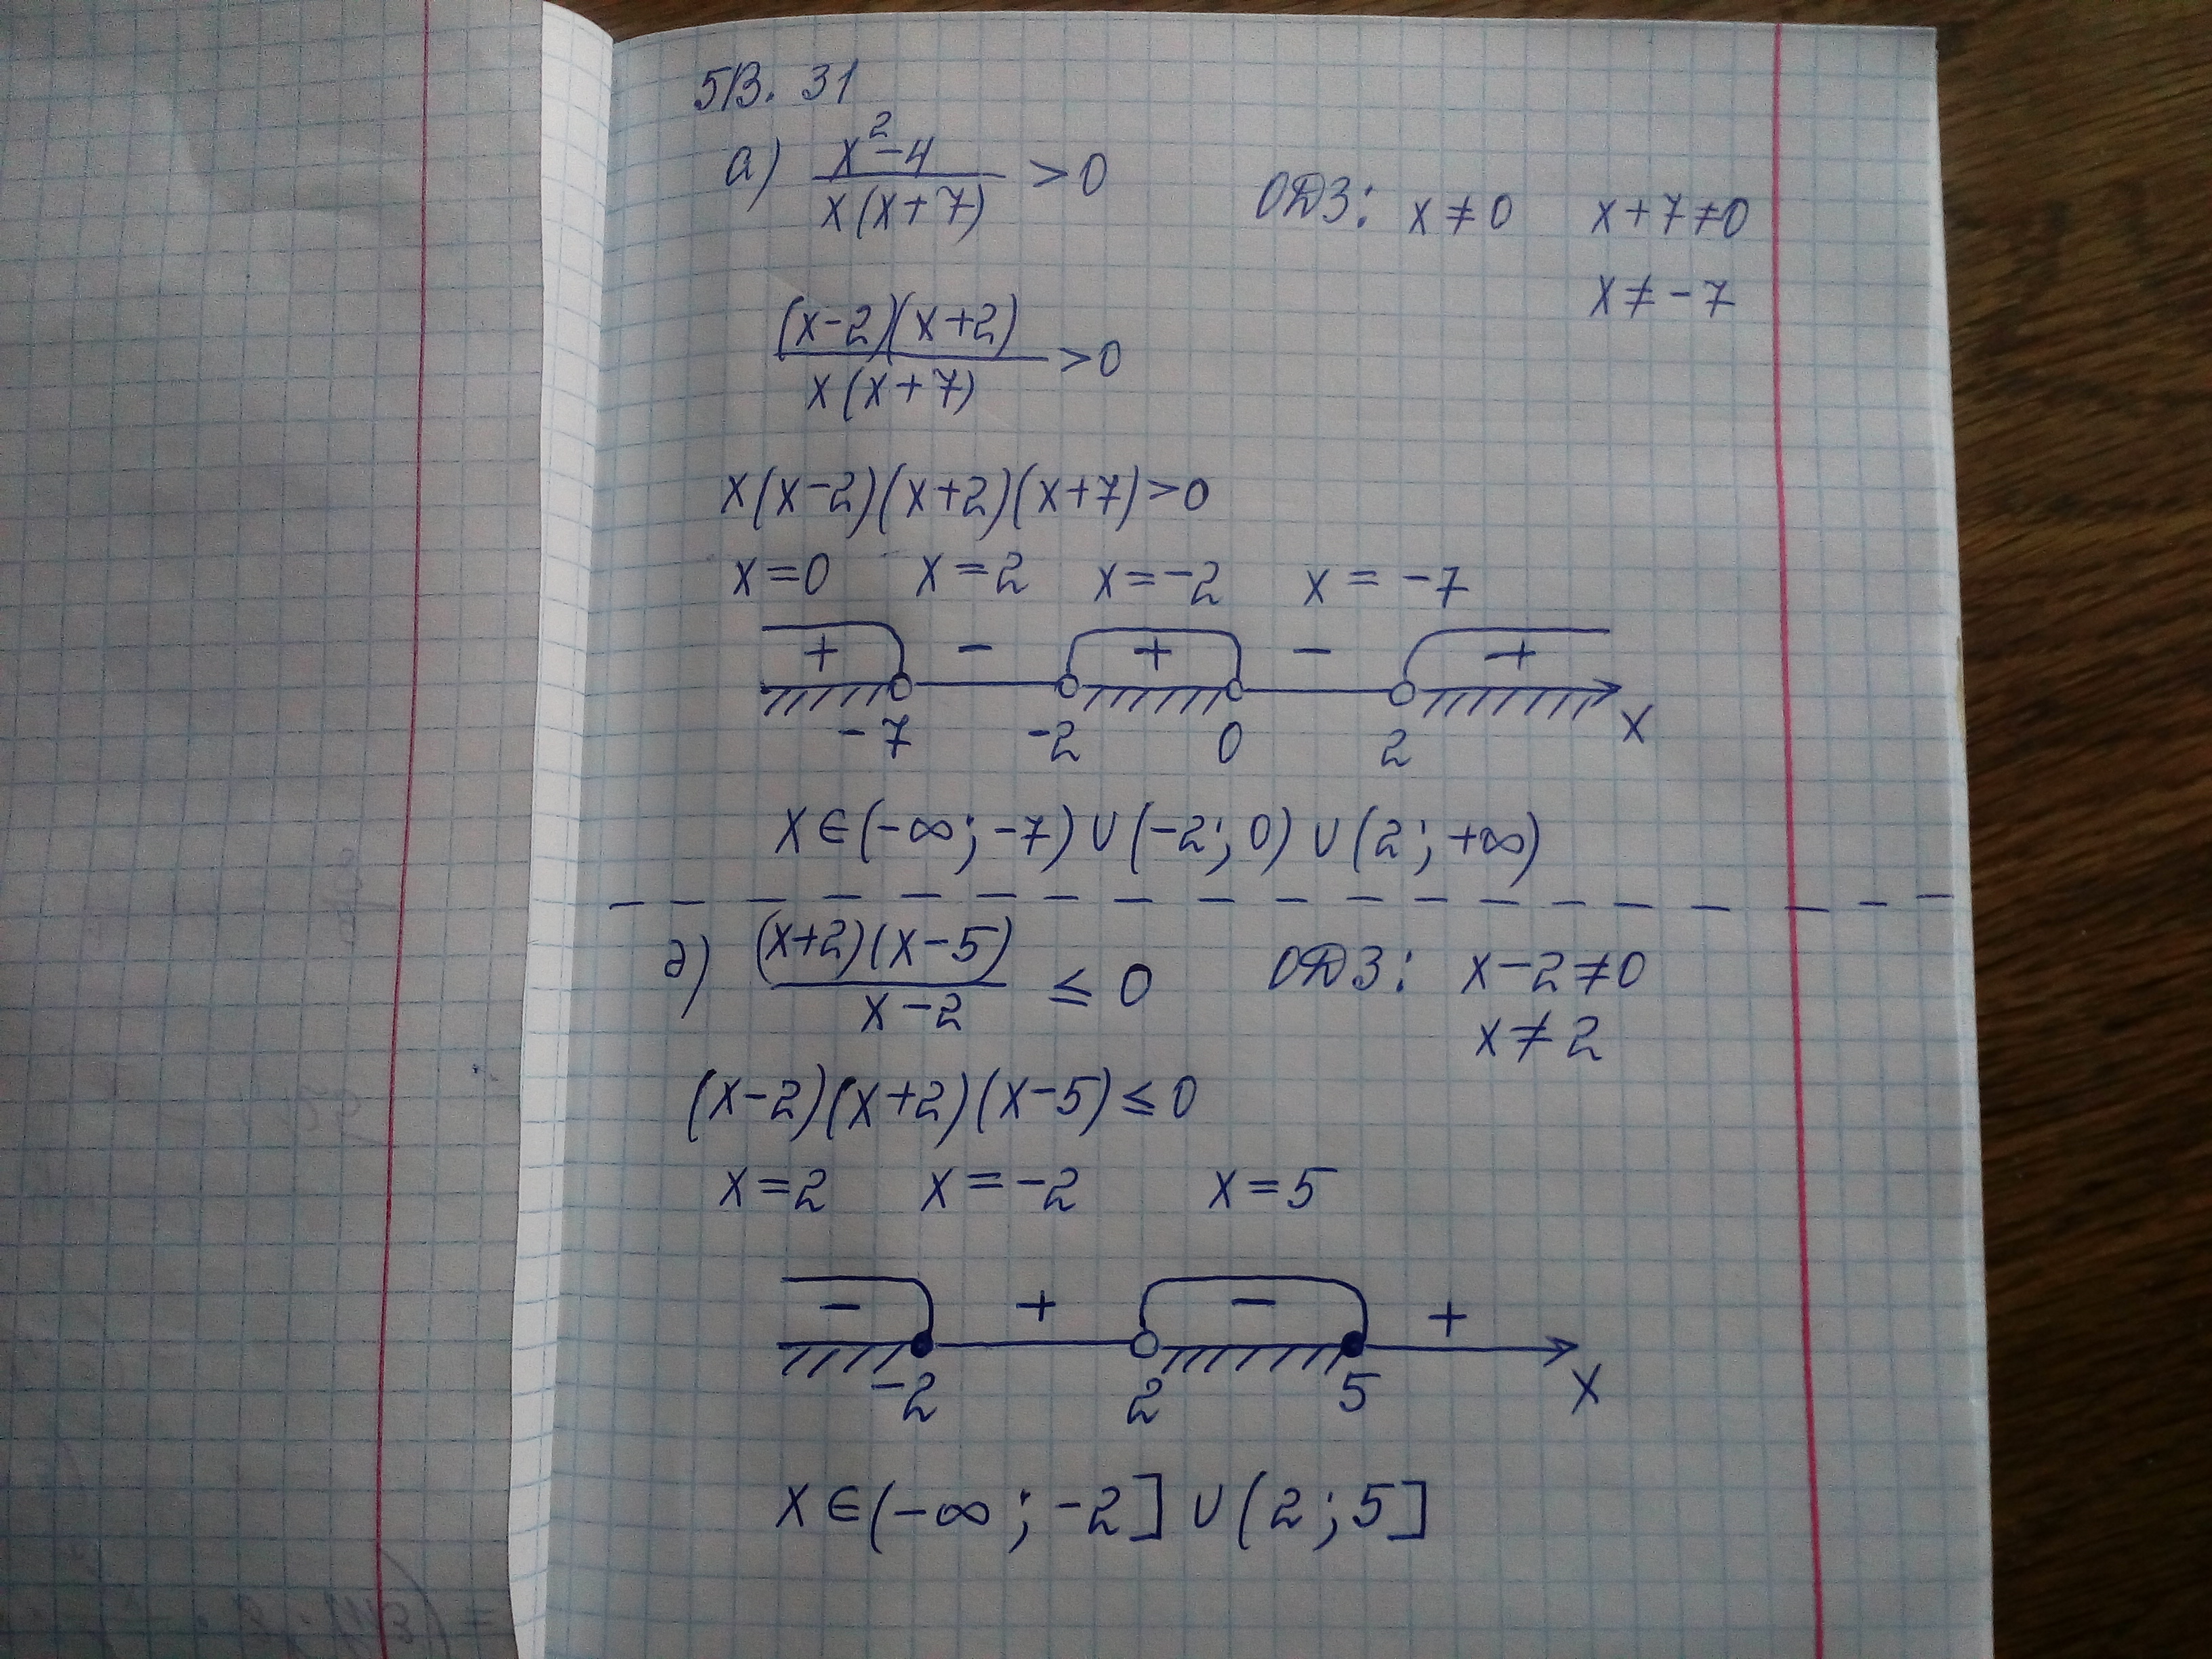 5В. 31
а) (x²-4)/(x(x+7)) >0 ОДЗ: x≠0 x+7≠0
x≠-7
((x-2)(x+2))/(x(x+7)) >0
x(x-2)(x+2)(x+7)>0
x=0 x=2 x=-2 x=-7
+ - + - +
-7 -2 0 2 x
x∈(-∞;-7)∪(-2;0)∪(2;+∞)
д) ((x+2)(x-5))/(x-2) ≤0 ОДЗ: x-2≠0
x≠2
(x-2)(x+2)(x-5)≤0
x=2 x=-2 x=5
- + - +
-2 2 5 x
x∈(-∞;-2]∪(2;5]